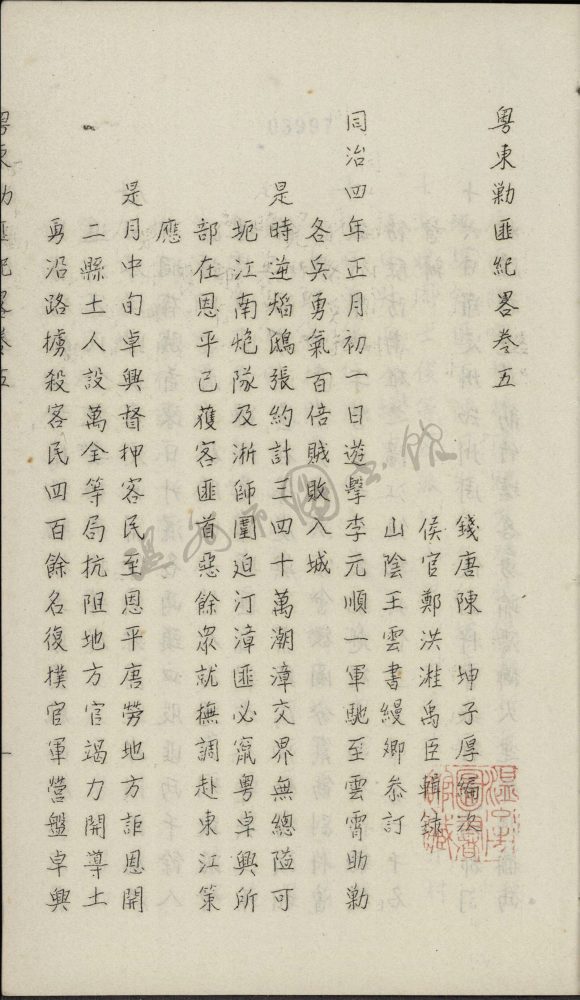 粵東勦匪紀畧卷五
錢唐陳坤子厚編次
侯官鄭洪溎禹臣輯錄
山陰王雲書縵卿叅訂
同治四年正月初一日遊擊李元順一軍馳至雲霄助勦
各兵勇氣百倍賊敗入城
是時逆焰鴟張約計三四十萬潮漳交界無總隘可
扼江南炮隊及淅師圍迫汀漳匪必竄粵卓興所
部在恩平已獲客匪首惡餘眾就撫調赴東江策
應
是月中旬卓興督押客民至恩平唐勞地方詎恩開
二縣土人設萬全等局抗阻地方官竭力開導土
勇沿路擄殺客民四百餘名復撲官軍營盤卓興
粵東勦匪紀畧卷五
溫州市圖書館